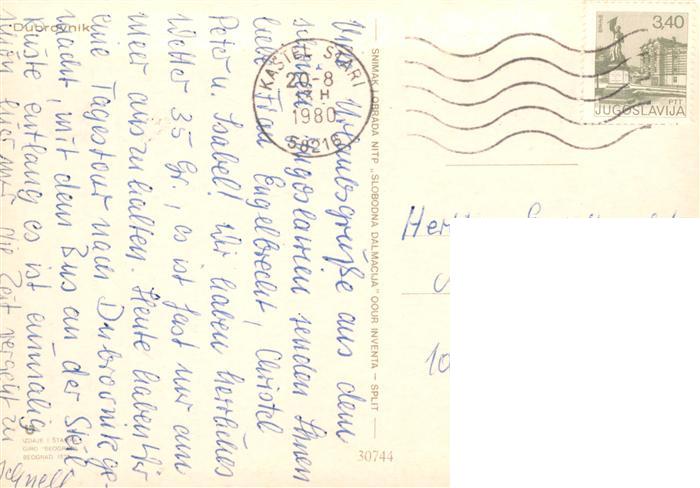 Dubrovnik
Urlaubsgrüße aus dem
schönen Jugoslawien senden Ihnen
liebe Frau Engelbrecht, Christel
Peter u. Isabel! Wir haben herrliches
Wetter 35 Gr., es ist fast nur am
Meer auszuhalten. Heute haben wir
eine Tagestour nach Dubrovnik ge-
macht, mit dem Bus an der Steil
Küste entlang es ist einmalig
schön
die Zeit vergeht zu
schnell
SNIMAK I OBRADA NITP „SLOBODNA DALMACIJA” OOUR INVENTA — SPLIT
30744
IZDAJE I
GIRO "BEOGRAD
BEOGRAD
KAŠTEL STARI
20-8
1980
58216
3,40
PTT
JUGOSLAVIJA
10